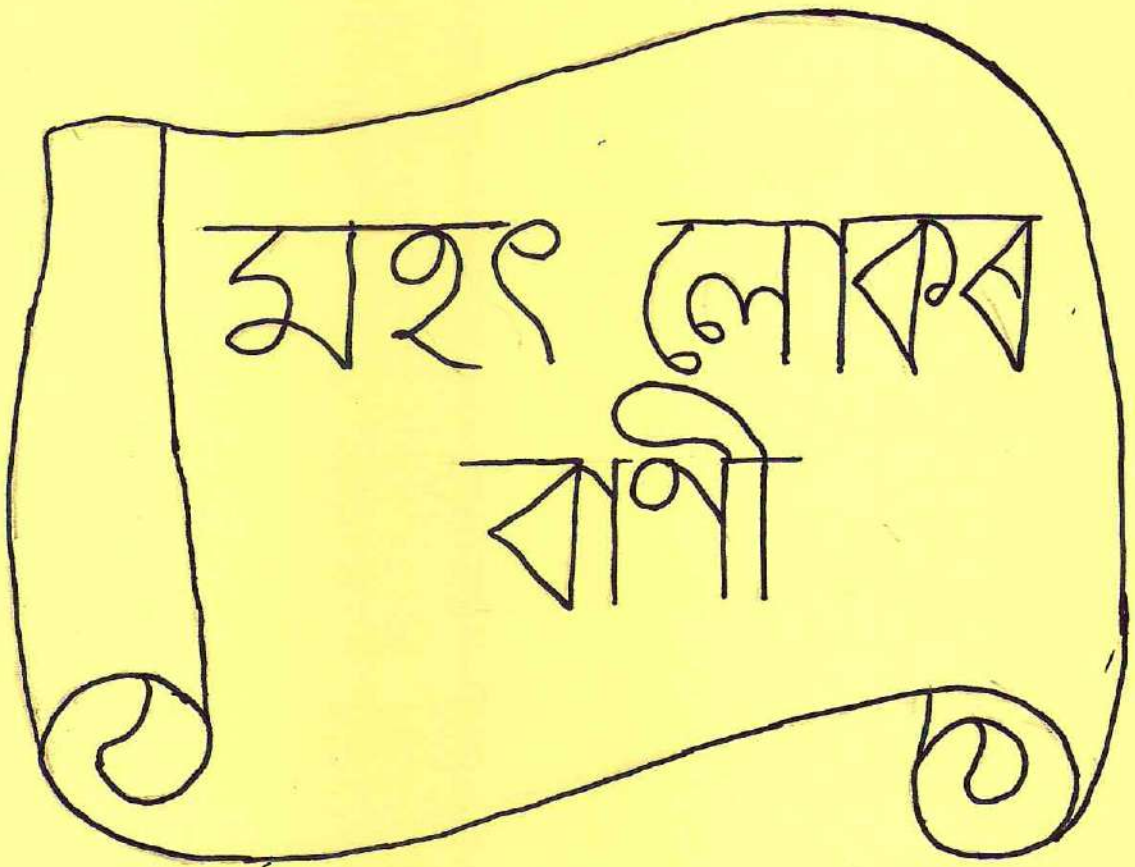 মহৎ লোকৰ
বাণী